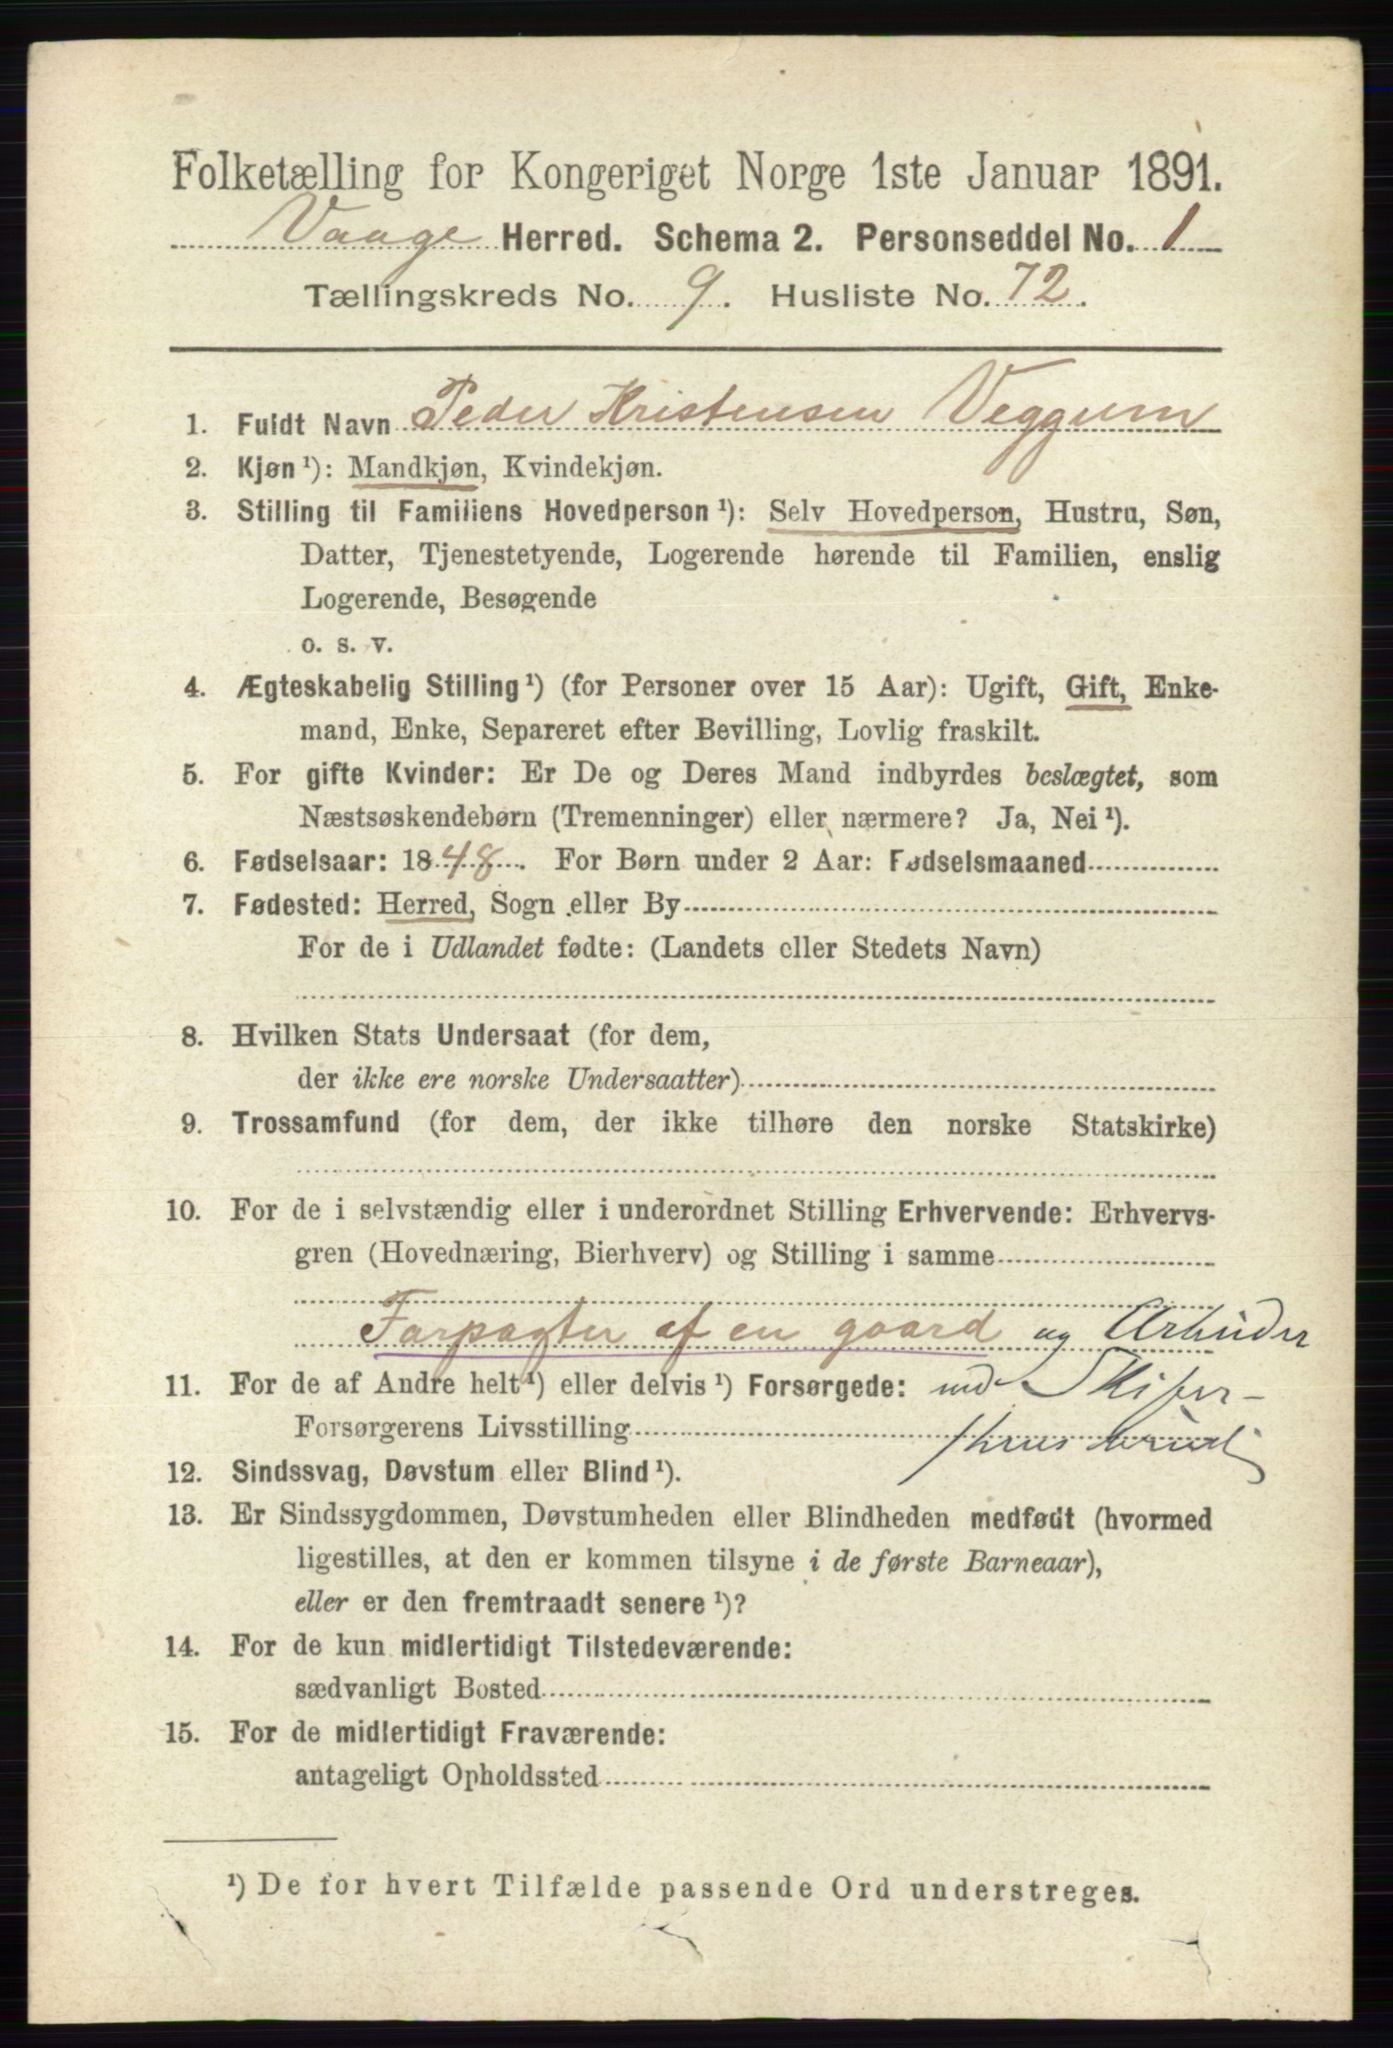 Folketælling for Kongeriget Norge 1ste Januar 1891.
Vaage Herred. Schema 2. Personseddel No. 1
Tællingskreds No. 9. Husliste No. 72.
1. Fuldt Navn Peder Kristensen Veggum
2. Kjøn ¹): Mandkjøn, Kvindekjøn.
3. Stilling til Familiens Hovedperson ¹): Selv Hovedperson, Hustru, Søn,
Datter, Tjenestetyende, Logerende hørende til Familien, enslig
Logerende, Besøgende
o. s. v.
4. Ægteskabelig Stilling ¹) (for Personer over 15 Aar): Ugift, Gift, Enke-
mand, Enke, Separeret efter Bevilling, Lovlig fraskilt.
5. For gifte Kvinder: Er De og Deres Mand indbyrdes beslægtet, som
Næstsøskendebørn (Tremenninger) eller nærmere? Ja, Nei ¹).
6. Fødselsaar: 1848. For Børn under 2 Aar: Fødselsmaaned
7. Fødested: Herred, Sogn eller By
For de i Udlandet fødte: (Landets eller Stedets Navn)
8. Hvilken Stats Undersaat (for dem,
der ikke ere norske Undersaatter)
9. Trossamfund (for dem, der ikke tilhøre den norske Statskirke)
10. For de i selvstændig eller i underordnet Stilling Erhvervende: Erhvervs-
gren (Hovednæring, Bierhverv) og Stilling i samme
Farpagter af en gaard og Arbeider
11. For de af Andre helt ¹) eller delvis ¹) Forsørgede: ved Skifer-
Forsørgerens Livsstilling
12. Sindssvag, Døvstum eller Blind ¹).
13. Er Sindssygdommen, Døvstumheden eller Blindheden medfødt (hvormed
ligestilles, at den er kommen tilsyne i de første Barneaar),
eller er den fremtraadt senere ¹)?
14. For de kun midlertidigt Tilstedeværende:
sædvanligt Bosted
15. For de midlertidigt Fraværende:
antageligt Opholdssted
¹) De for hvert Tilfælde passende Ord understreges.